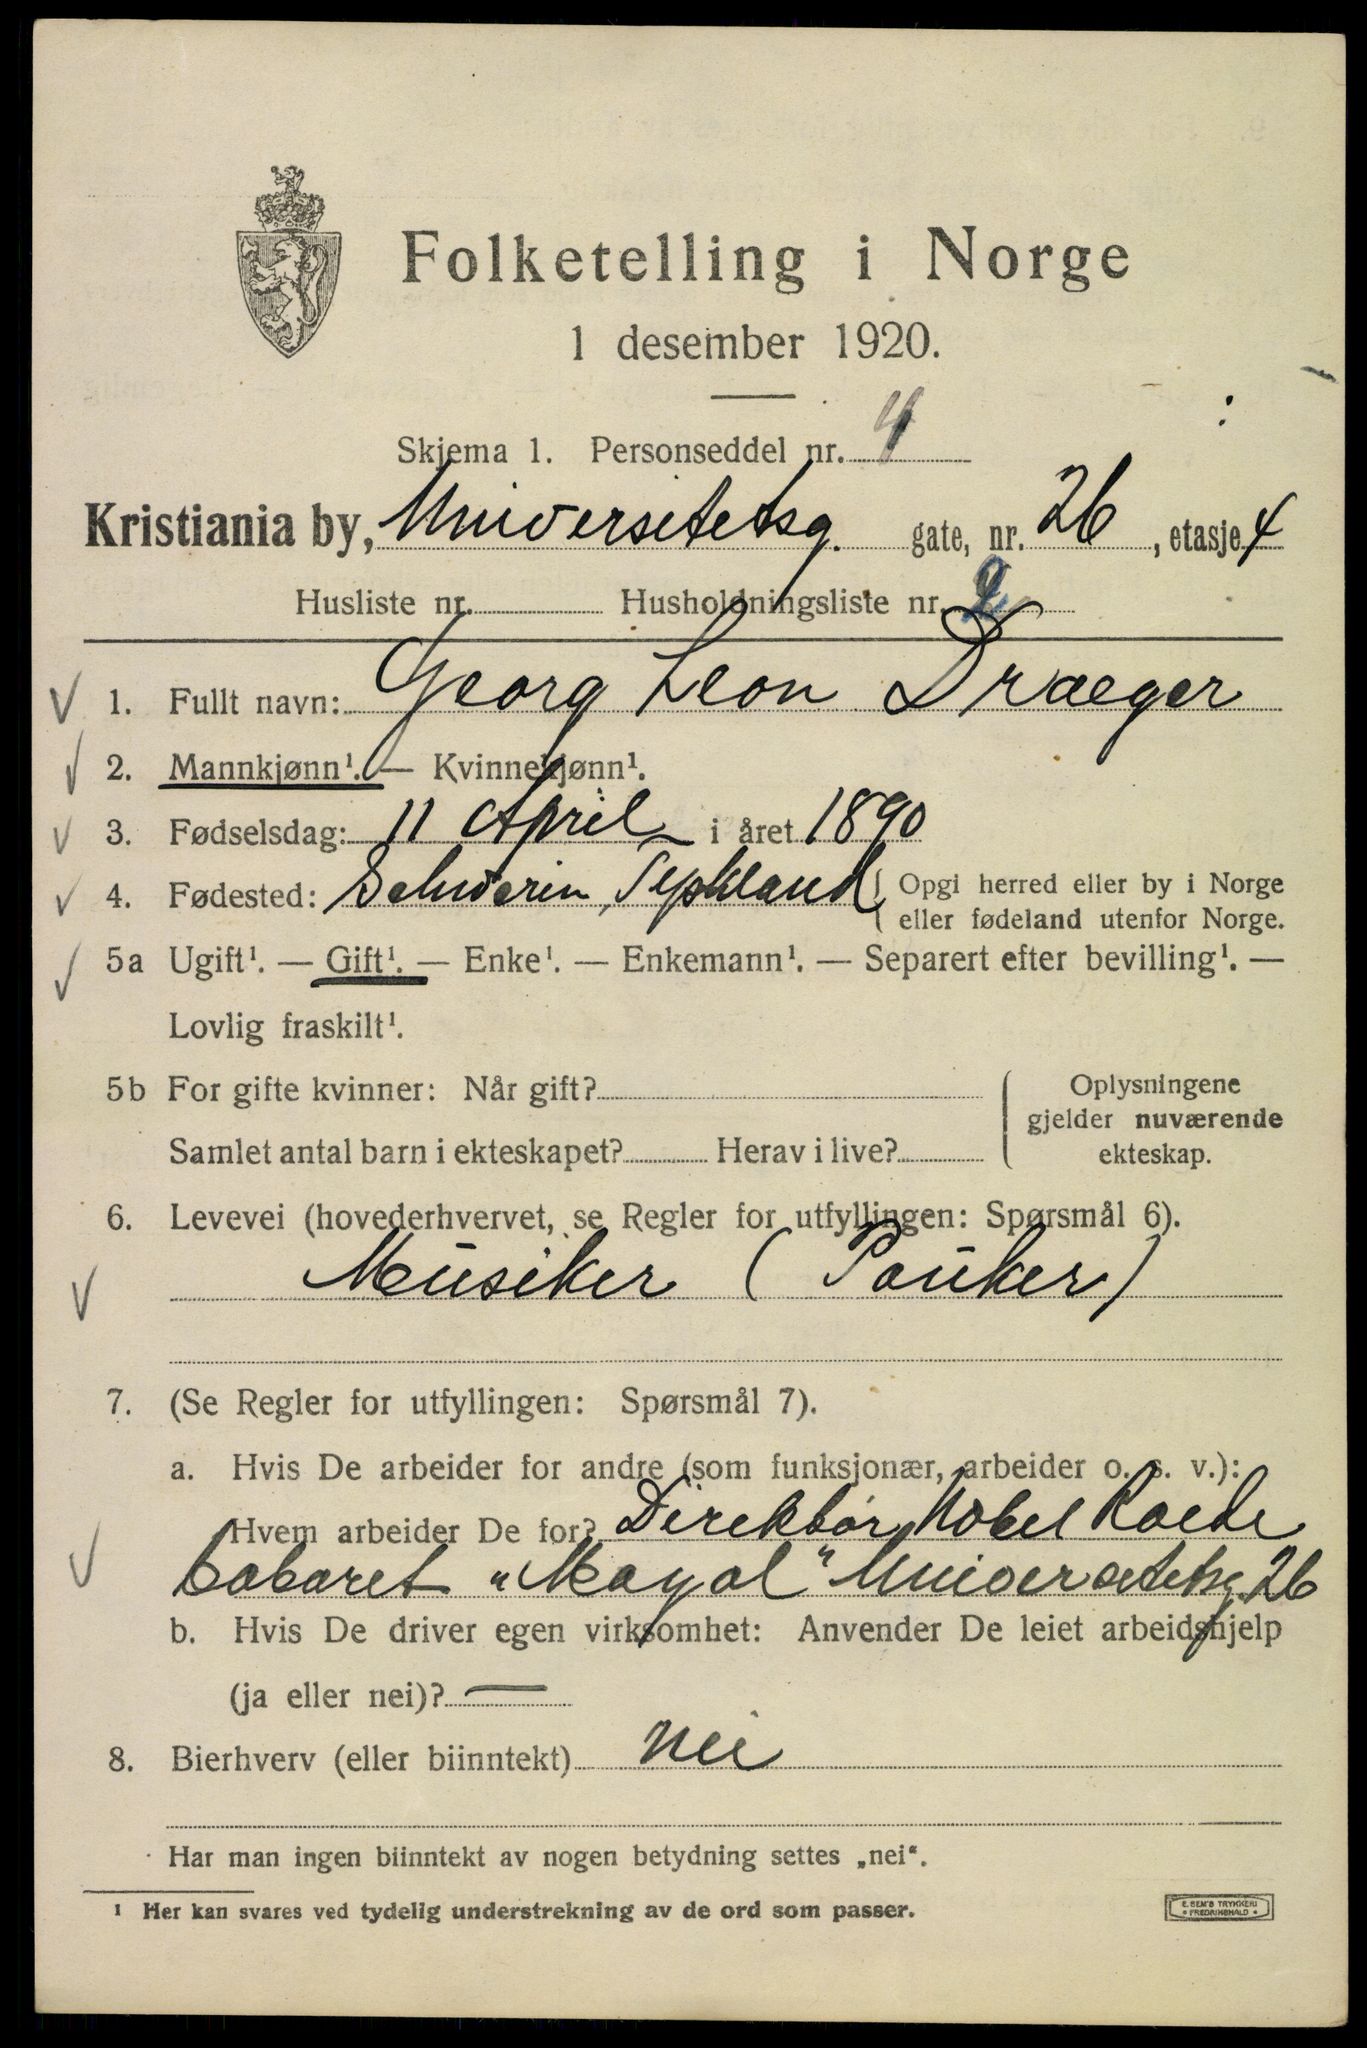 Folketelling i Norge
1 desember 1920.
Skjema 1. Personseddel nr. 4
Kristiania by, Universitetsg. gate, nr. 26, etasje 4
Husliste nr. Husholdningsliste nr. 2
1. Fullt navn: Georg Leon Draeger
2. Mannkjønn¹. — Kvinnekjønn¹.
3. Fødselsdag: 11 April i året 1890
4. Fødested: Schwerin, Tyskland Opgi herred eller by i Norge
eller fødeland utenfor Norge.
5a Ugift¹. — Gift¹. — Enke¹. — Enkemann¹. — Separert efter bevilling¹. —
Lovlig fraskilt¹.
5b For gifte kvinner: Når gift? Oplysningene
gjelder nuværende
Samlet antal barn i ekteskapet? Herav i live? ekteskap.
6. Levevei (hovederhvervet, se Regler for utfyllingen: Spørsmål 6).
Musiker (Pauker)
7. (Se Regler for utfyllingen: Spørsmål 7).
a. Hvis De arbeider for andre (som funksjonær, arbeider o. s. v.):
Hvem arbeider De for? Direktør Nobel Roede
Cabaret "Mayol" Universitetsg. 26
b. Hvis De driver egen virksomhet: Anvender De leiet arbeidshjelp
(ja eller nei)? —
8. Bierhverv (eller biinntekt) nei
Har man ingen biinntekt av nogen betydning settes „nei“.
¹ Her kan svares ved tydelig understrekning av de ord som passer.
E. SEM'S TRYKKERI
FREDRIKSHALD